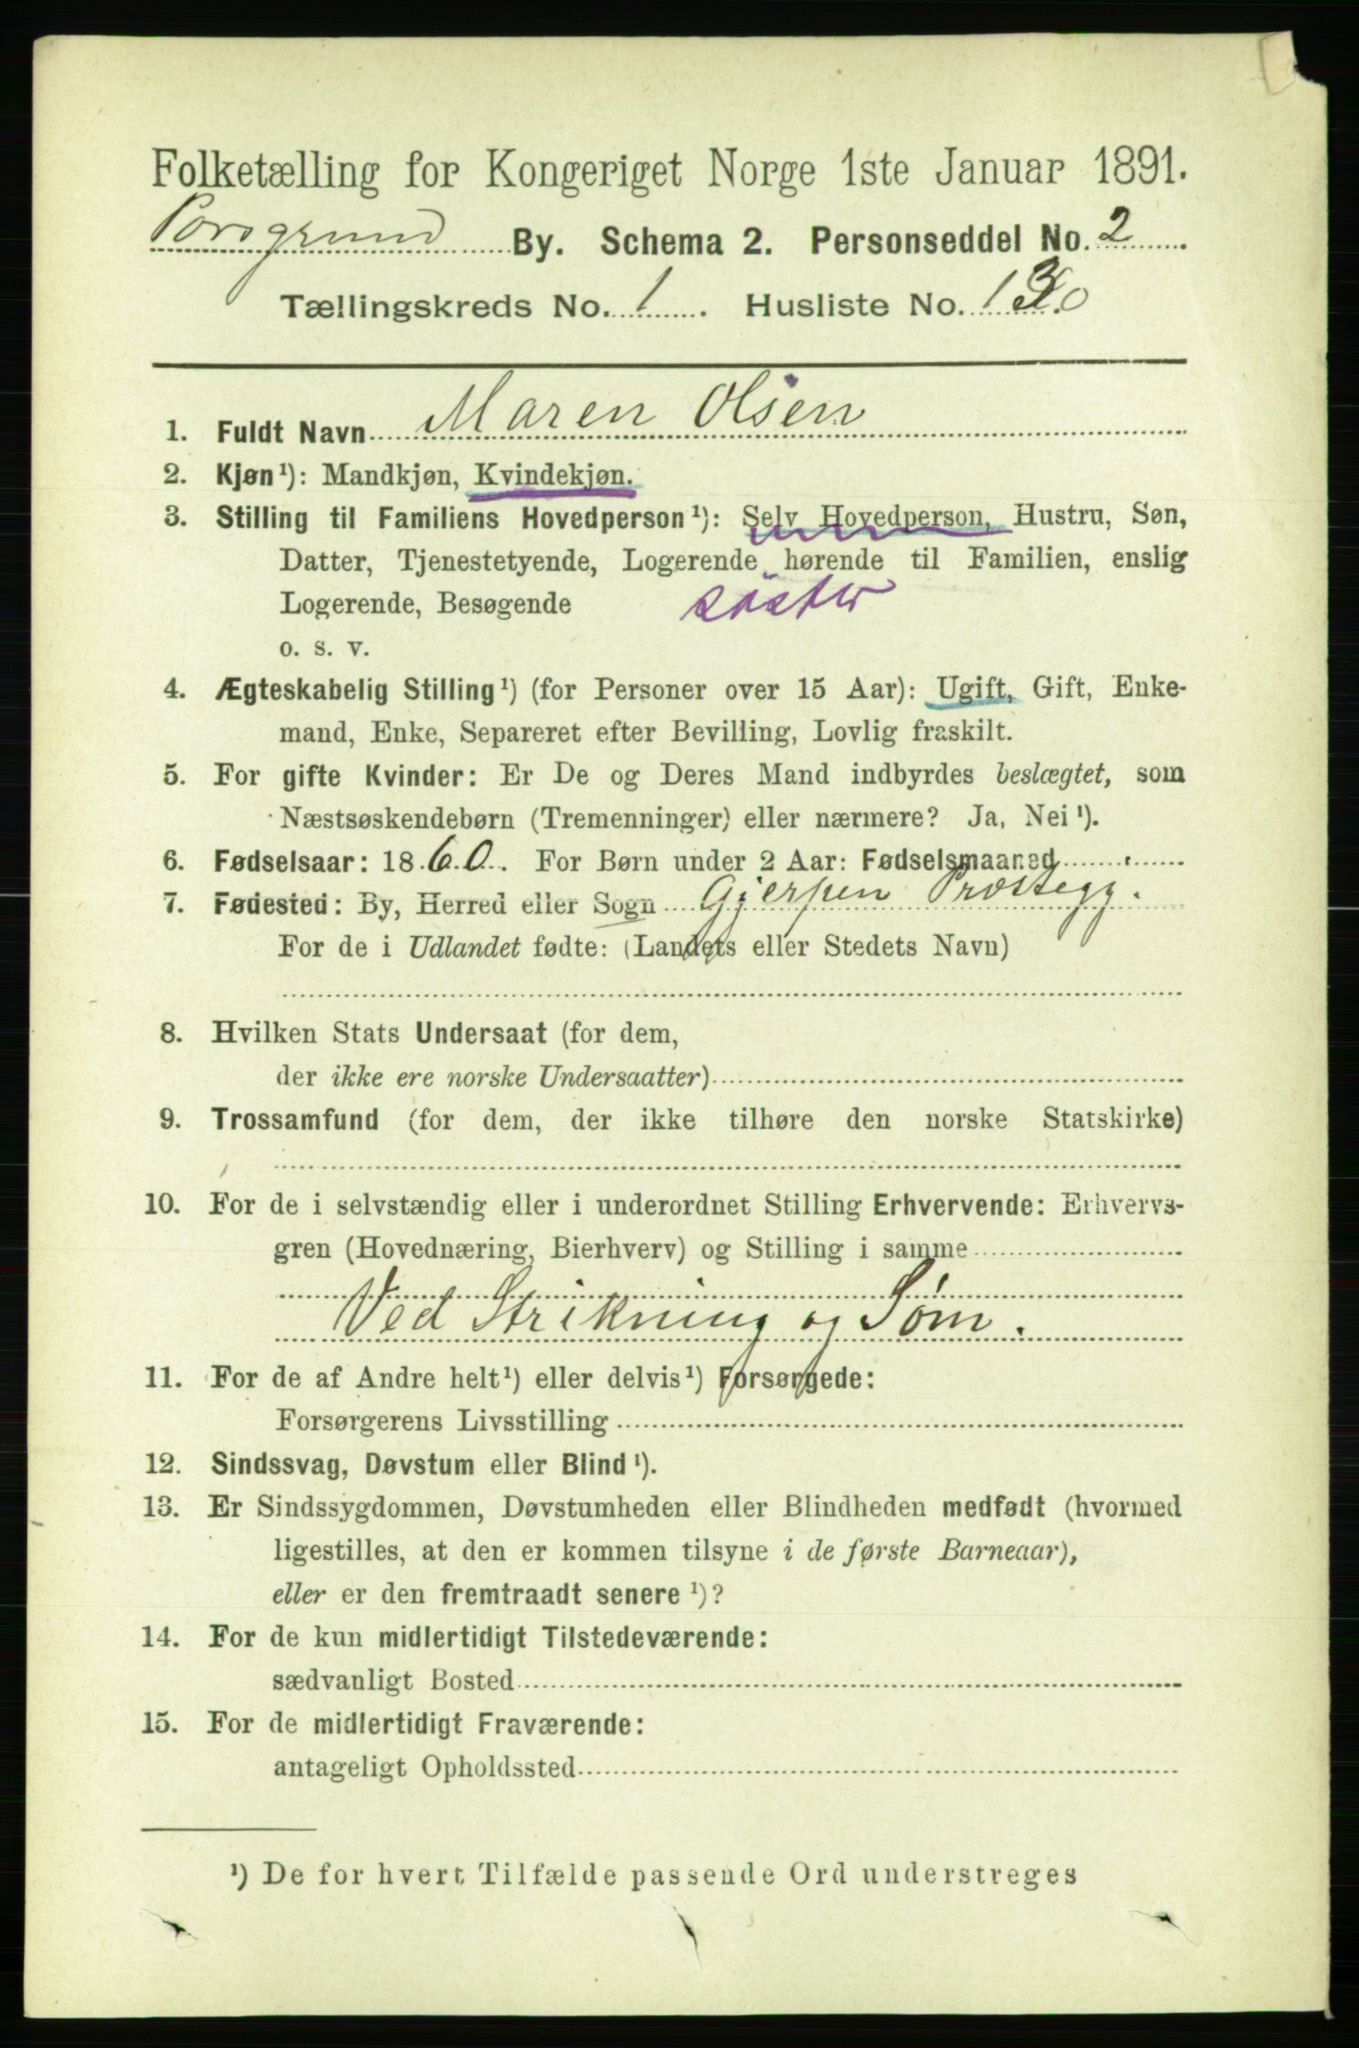 Folketælling for Kongeriget Norge 1ste Januar 1891.
Porsgrund By. Schema 2. Personseddel No. 2
Tællingskreds No. 1. Husliste No. 130
1. Fuldt Navn Maren Olsen
2. Kjøn¹): Mandkjøn, Kvindekjøn.
3. Stilling til Familiens Hovedperson¹): Selv Hovedperson, Hustru, Søn,
Datter, Tjenestetyende, Logerende hørende til Familien, enslig
Logerende, Besøgende søster
o. s. v.
4. Ægteskabelig Stilling¹) (for Personer over 15 Aar): Ugift, Gift, Enke-
mand, Enke, Separeret efter Bevilling, Lovlig fraskilt.
5. For gifte Kvinder: Er De og Deres Mand indbyrdes beslægtet, som
Næstsøskendebørn (Tremenninger) eller nærmere? Ja, Nei¹).
6. Fødselsaar: 1860. For Børn under 2 Aar: Fødselsmaaned
7. Fødested: By, Herred eller Sogn Gjerpen Præstegj.
For de i Udlandet fødte: (Landets eller Stedets Navn)
8. Hvilken Stats Undersaat (for dem,
der ikke ere norske Undersaatter)
9. Trossamfund (for dem, der ikke tilhøre den norske Statskirke)
10. For de i selvstændig eller i underordnet Stilling Erhvervende: Erhvervs-
gren (Hovednæring, Bierhverv) og Stilling i samme
Ved Strikning og Søm.
11. For de af Andre helt¹) eller delvis¹) Forsørgede:
Forsørgerens Livsstilling
12. Sindssvag, Døvstum eller Blind¹).
13. Er Sindssygdommen, Døvstumheden eller Blindheden medfødt (hvormed
ligestilles, at den er kommen tilsyne i de første Barneaar),
eller er den fremtraadt senere¹)?
14. For de kun midlertidigt Tilstedeværende:
sædvanligt Bosted
15. For de midlertidigt Fraværende:
antageligt Opholdssted
¹) De for hvert Tilfælde passende Ord understreges